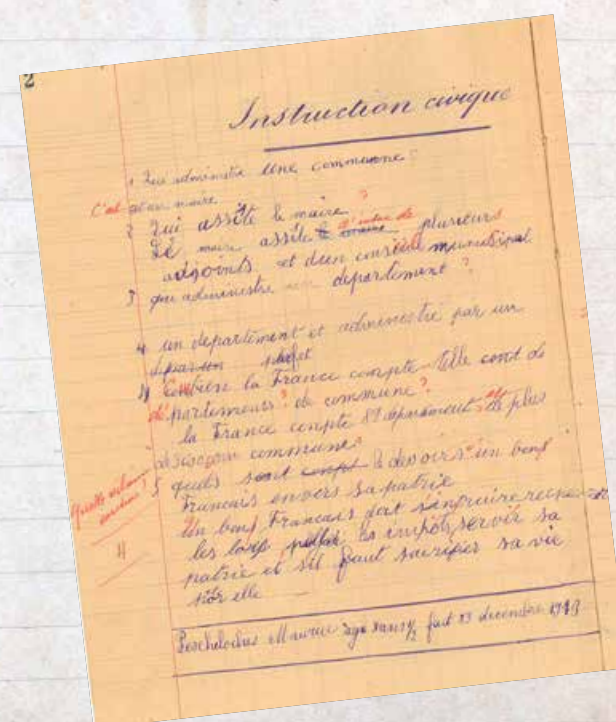 2
Instruction civique
1 Qui administre une commune ?
C'est un maire
2 Qui assite le maire ?
Le maire assite plusieurs
adjoints et d'un conseil municipal
3 qui administre un departement ?
4 un departement et administré par un
prefet
4 Combien la France compte telle de
départements ? de commune ?
la France compte departement et plus
de commune
5 quels sont devoirs un bons
Francais envers sa patrie
Un bons Francais doit
les lois les impots servir sa
patrie et sil faut sacrifier sa vie
pour elle
Quelle vilaine
4
Maurice agé ans ½ fait 13 decembre